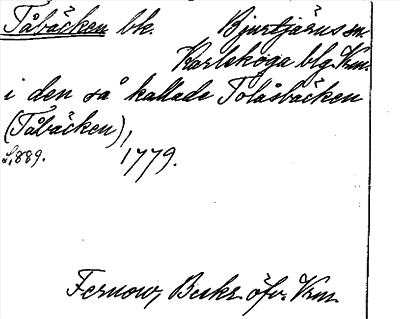 Tåbäcken bk. Bjurtjärns sn
Karlskoga blg Vrm.
i den så kallade Tolåsbäcken
(Tåbäcken),
s. 889. 1779.
Fernow, Beskr. öfv. Vrm.